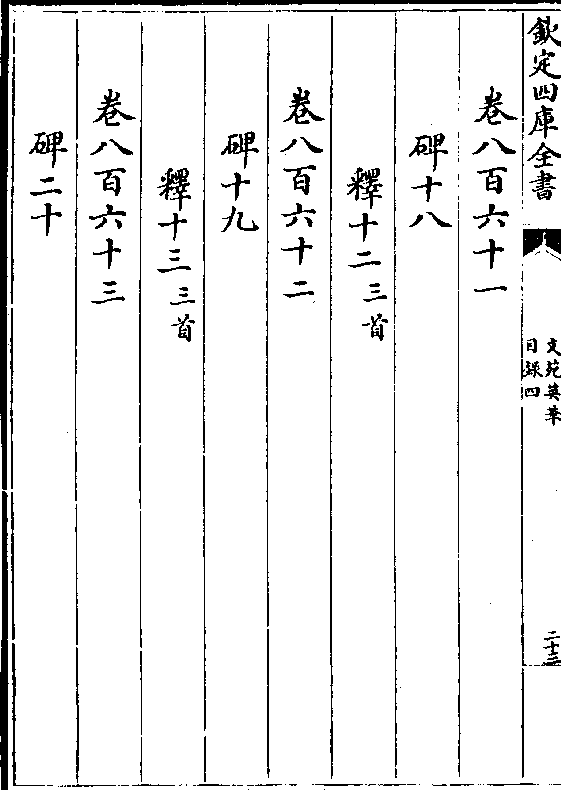 欽定四庫全書
文苑英華
目錄四
二十三
卷八百六十一
碑十八
釋十二三首
卷八百六十二
碑十九
釋十三三首
卷八百六十三
碑二十